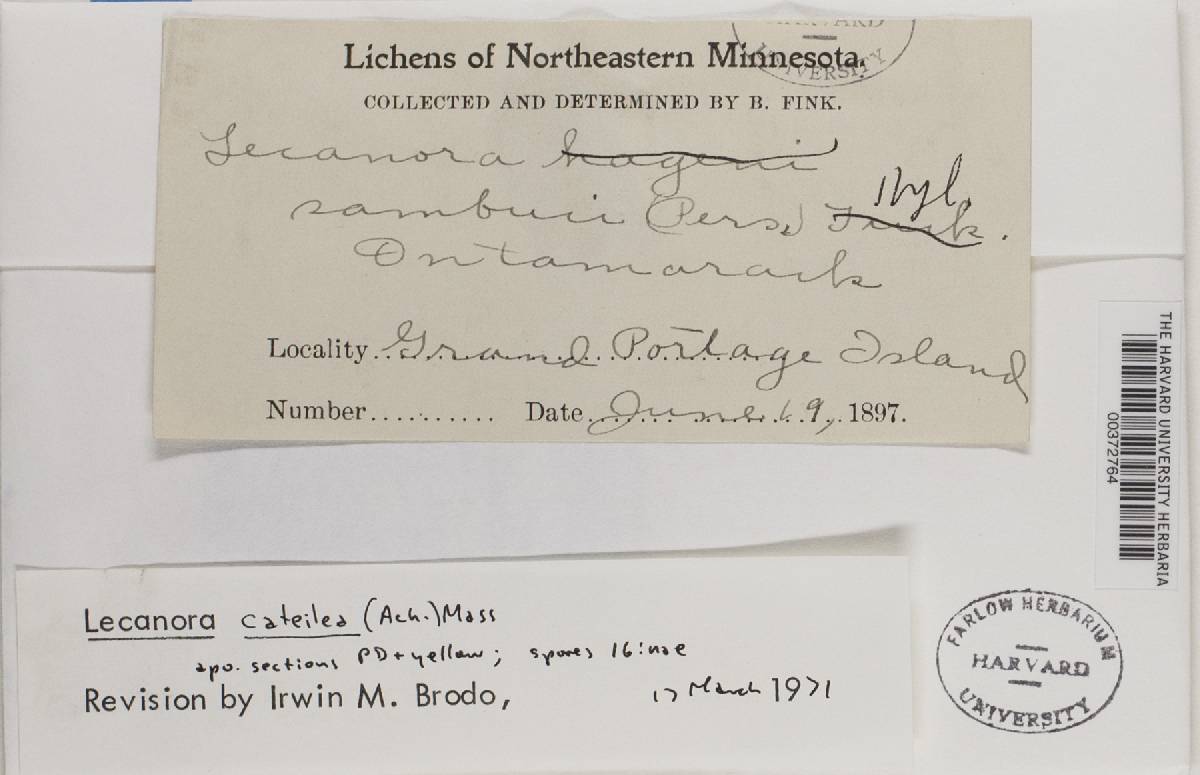 HARVARD
UNIVERSITY
Lichens of Northeastern Minnesota.
COLLECTED AND DETERMINED BY B. FINK.
Lecanora hageni
Nyl.
sambuci (Pers.) Fink.
On tamarack
Locality Grand Portage Island
Number.......... Date June 19, 1897.
THE HARVARD UNIVERSITY HERBARIA
00372764
Lecanora cateilea (Ach.) Mass
apo. sections PD+yellow; spores 16:nae
Revision by Irwin M. Brodo, 17 March 1971
FARLOW HERBARIUM
HARVARD
UNIVERSITY